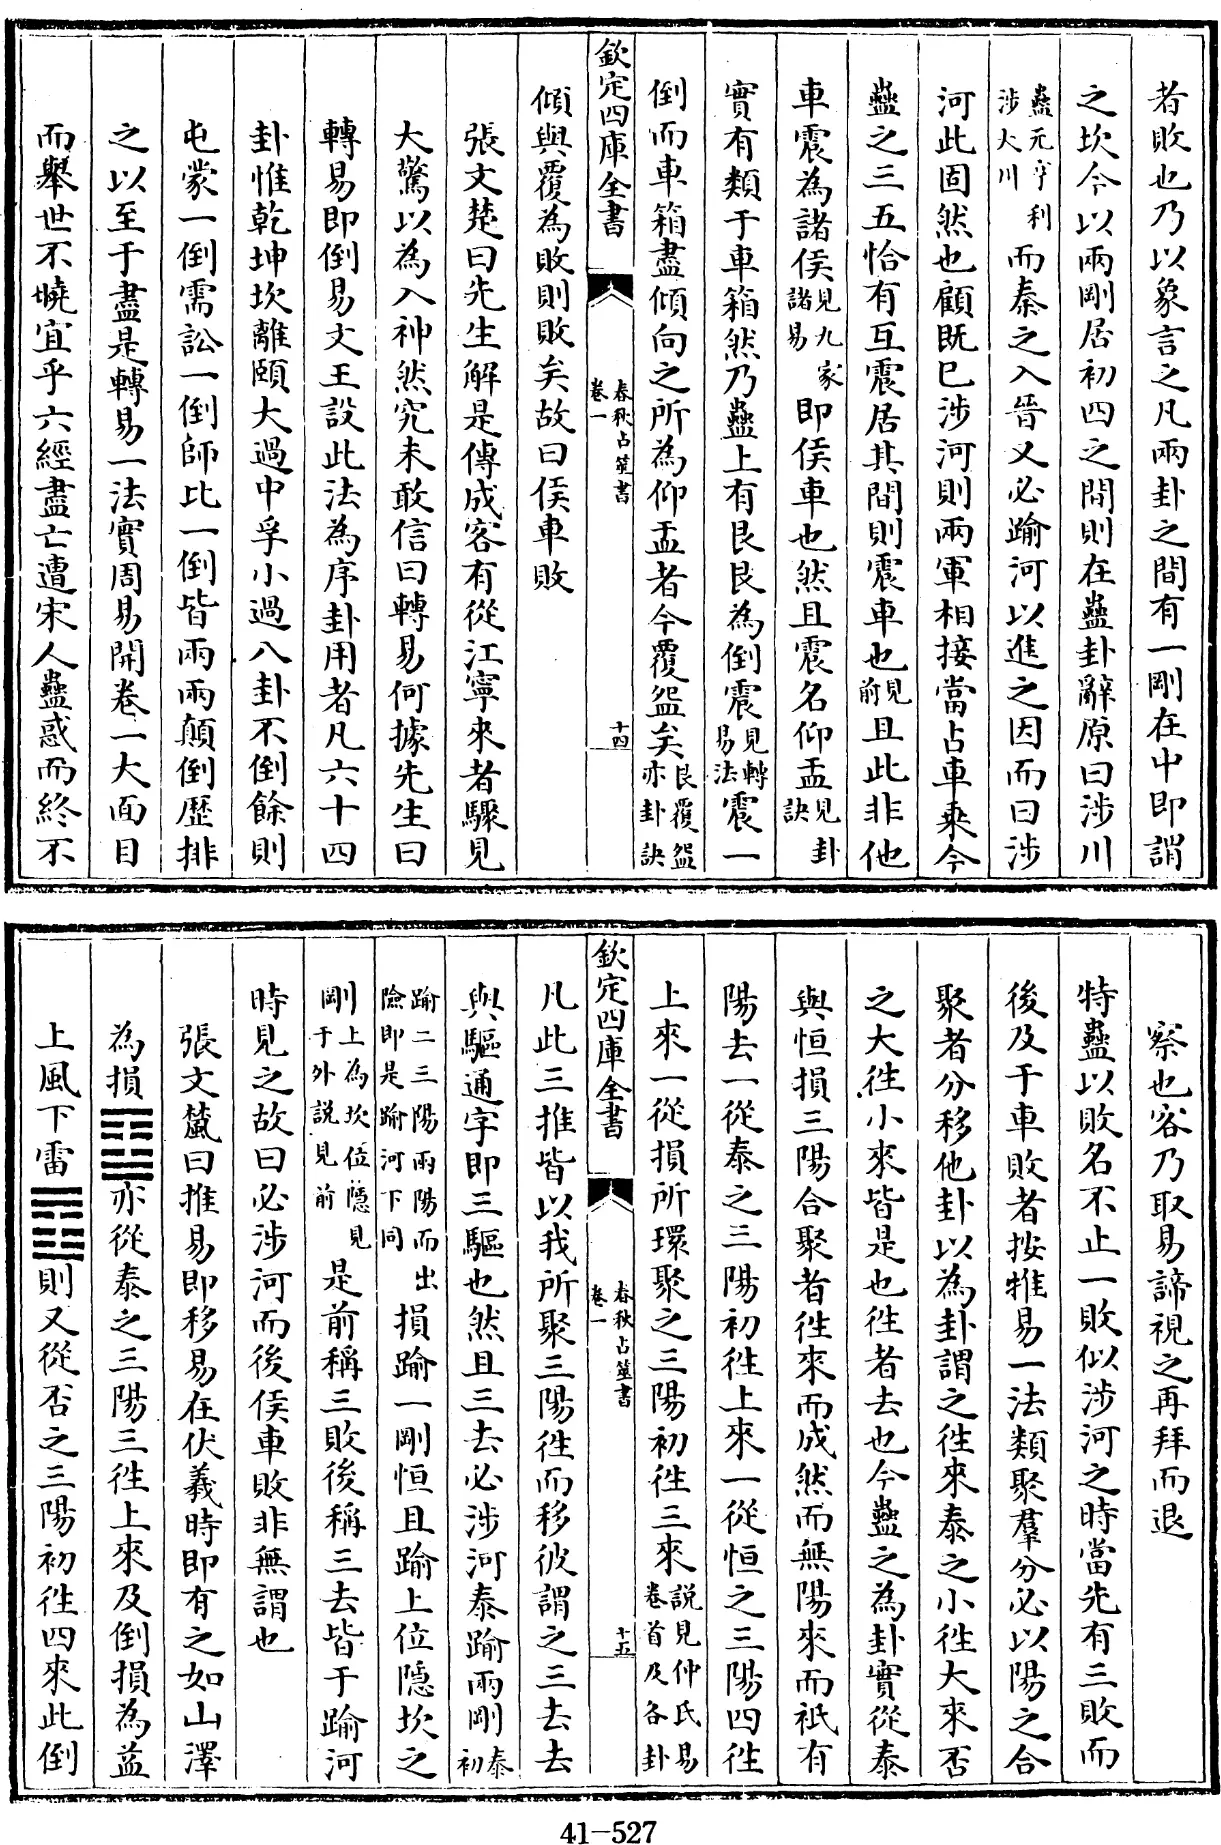 者敗也乃以象言之凡兩卦之間有一剛在中即謂
之坎今以兩剛居初四之間則在蠱卦辭原曰涉川
蠱元亨利涉大川而秦之入晉又必踰河以進之因而曰涉
河此固然也顧既已涉河則兩軍相接當占車乘今
蠱之三五恰有互震居其間則震車也見前且此非他
車震為諸侯見九家諸易即侯車也然且震名仰盂見卦訣
實有類于車箱然乃蠱上有艮艮為倒震見轉易法震一
倒而車箱盡傾向之所為仰盂者今覆盌矣艮覆盌亦卦訣
欽定四庫全書
春秋占筮書
卷一
十四
傾與覆為敗則敗矣故曰侯車敗
張文楚曰先生解是傳成客有從江寧來者驟見
大驚以為入神然究未敢信曰轉易何據先生曰
轉易即倒易文王設此法為序卦用者凡六十四
卦惟乾坤坎離頤大過中孚小過八卦不倒餘則
屯蒙一倒需訟一倒師比一倒皆兩兩顛倒歷排
之以至于盡是轉易一法實周易開卷一大面目
而舉世不曉宜乎六經盡亡遭宋人蠱惑而終不
察也客乃取易諦視之再拜而退
特蠱以敗名不止一敗似涉河之時當先有三敗而
後及于車敗者按推易一法類聚羣分必以陽之合
聚者分移他卦以為卦謂之徃來泰之小徃大來否
之大徃小來皆是也徃者去也今蠱之為卦實從泰
與恒損三陽合聚者徃來而成然而無陽來而祇有
陽去一從泰之三陽初徃上來一從恒之三陽四徃
上來一從損所環聚之三陽初徃三來說見仲氏易卷首及各卦
欽定四庫全書
春秋占筮書
卷一
十五
凡此三推皆以我所聚三陽徃而移彼謂之三去去
與驅通字即三驅也然且三去必涉河泰踰兩剛泰初
踰二三陽兩陽而出險即是踰河下同損踰一剛恒且踰上位隱坎之
剛上為坎位隱見于外説見前是前稱三敗後稱三去皆于踰河
時見之故曰必涉河而後侯車敗非無謂也
張文虪曰推易即移易在伏羲時即有之如山澤
為損䷨亦從泰之三陽三徃上來及倒損為益
上風下雷䷩則又從否之三陽初徃四來此倒
41-527